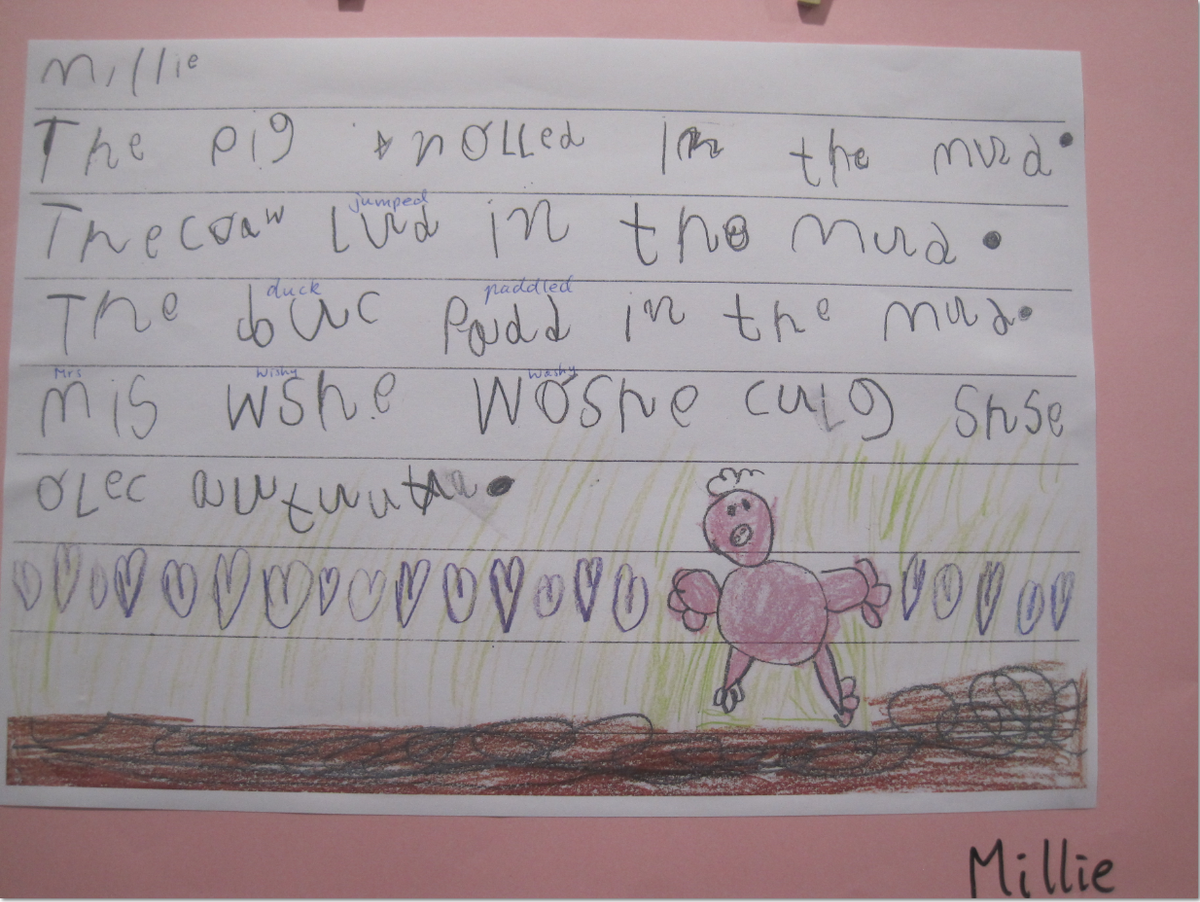 Millie
The pig rolled in the mud.
jumped
The coaw Lud in the mud.
duck paddled
The duc Padd in the mud.
Mrs wishy washy
mis wshe woshe culg shse
olec
Millie